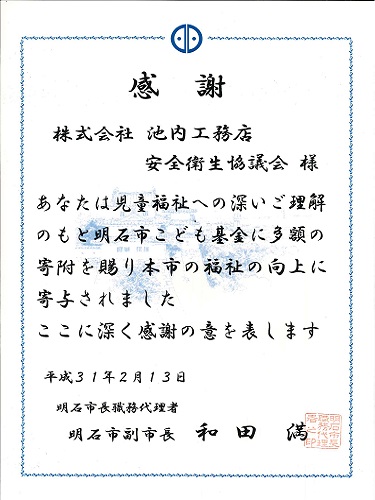 感謝
株式会社 池内工務店
安全衛生協議会 様
あなたは児童福祉への深いご理解
のもと明石市こども基金に多額の
寄附を賜り本市の福祉の向上に
寄与されました
ここに深く感謝の意を表します
平成31年2月13日
明石市長職務代理者
明石市副市長 和田 満